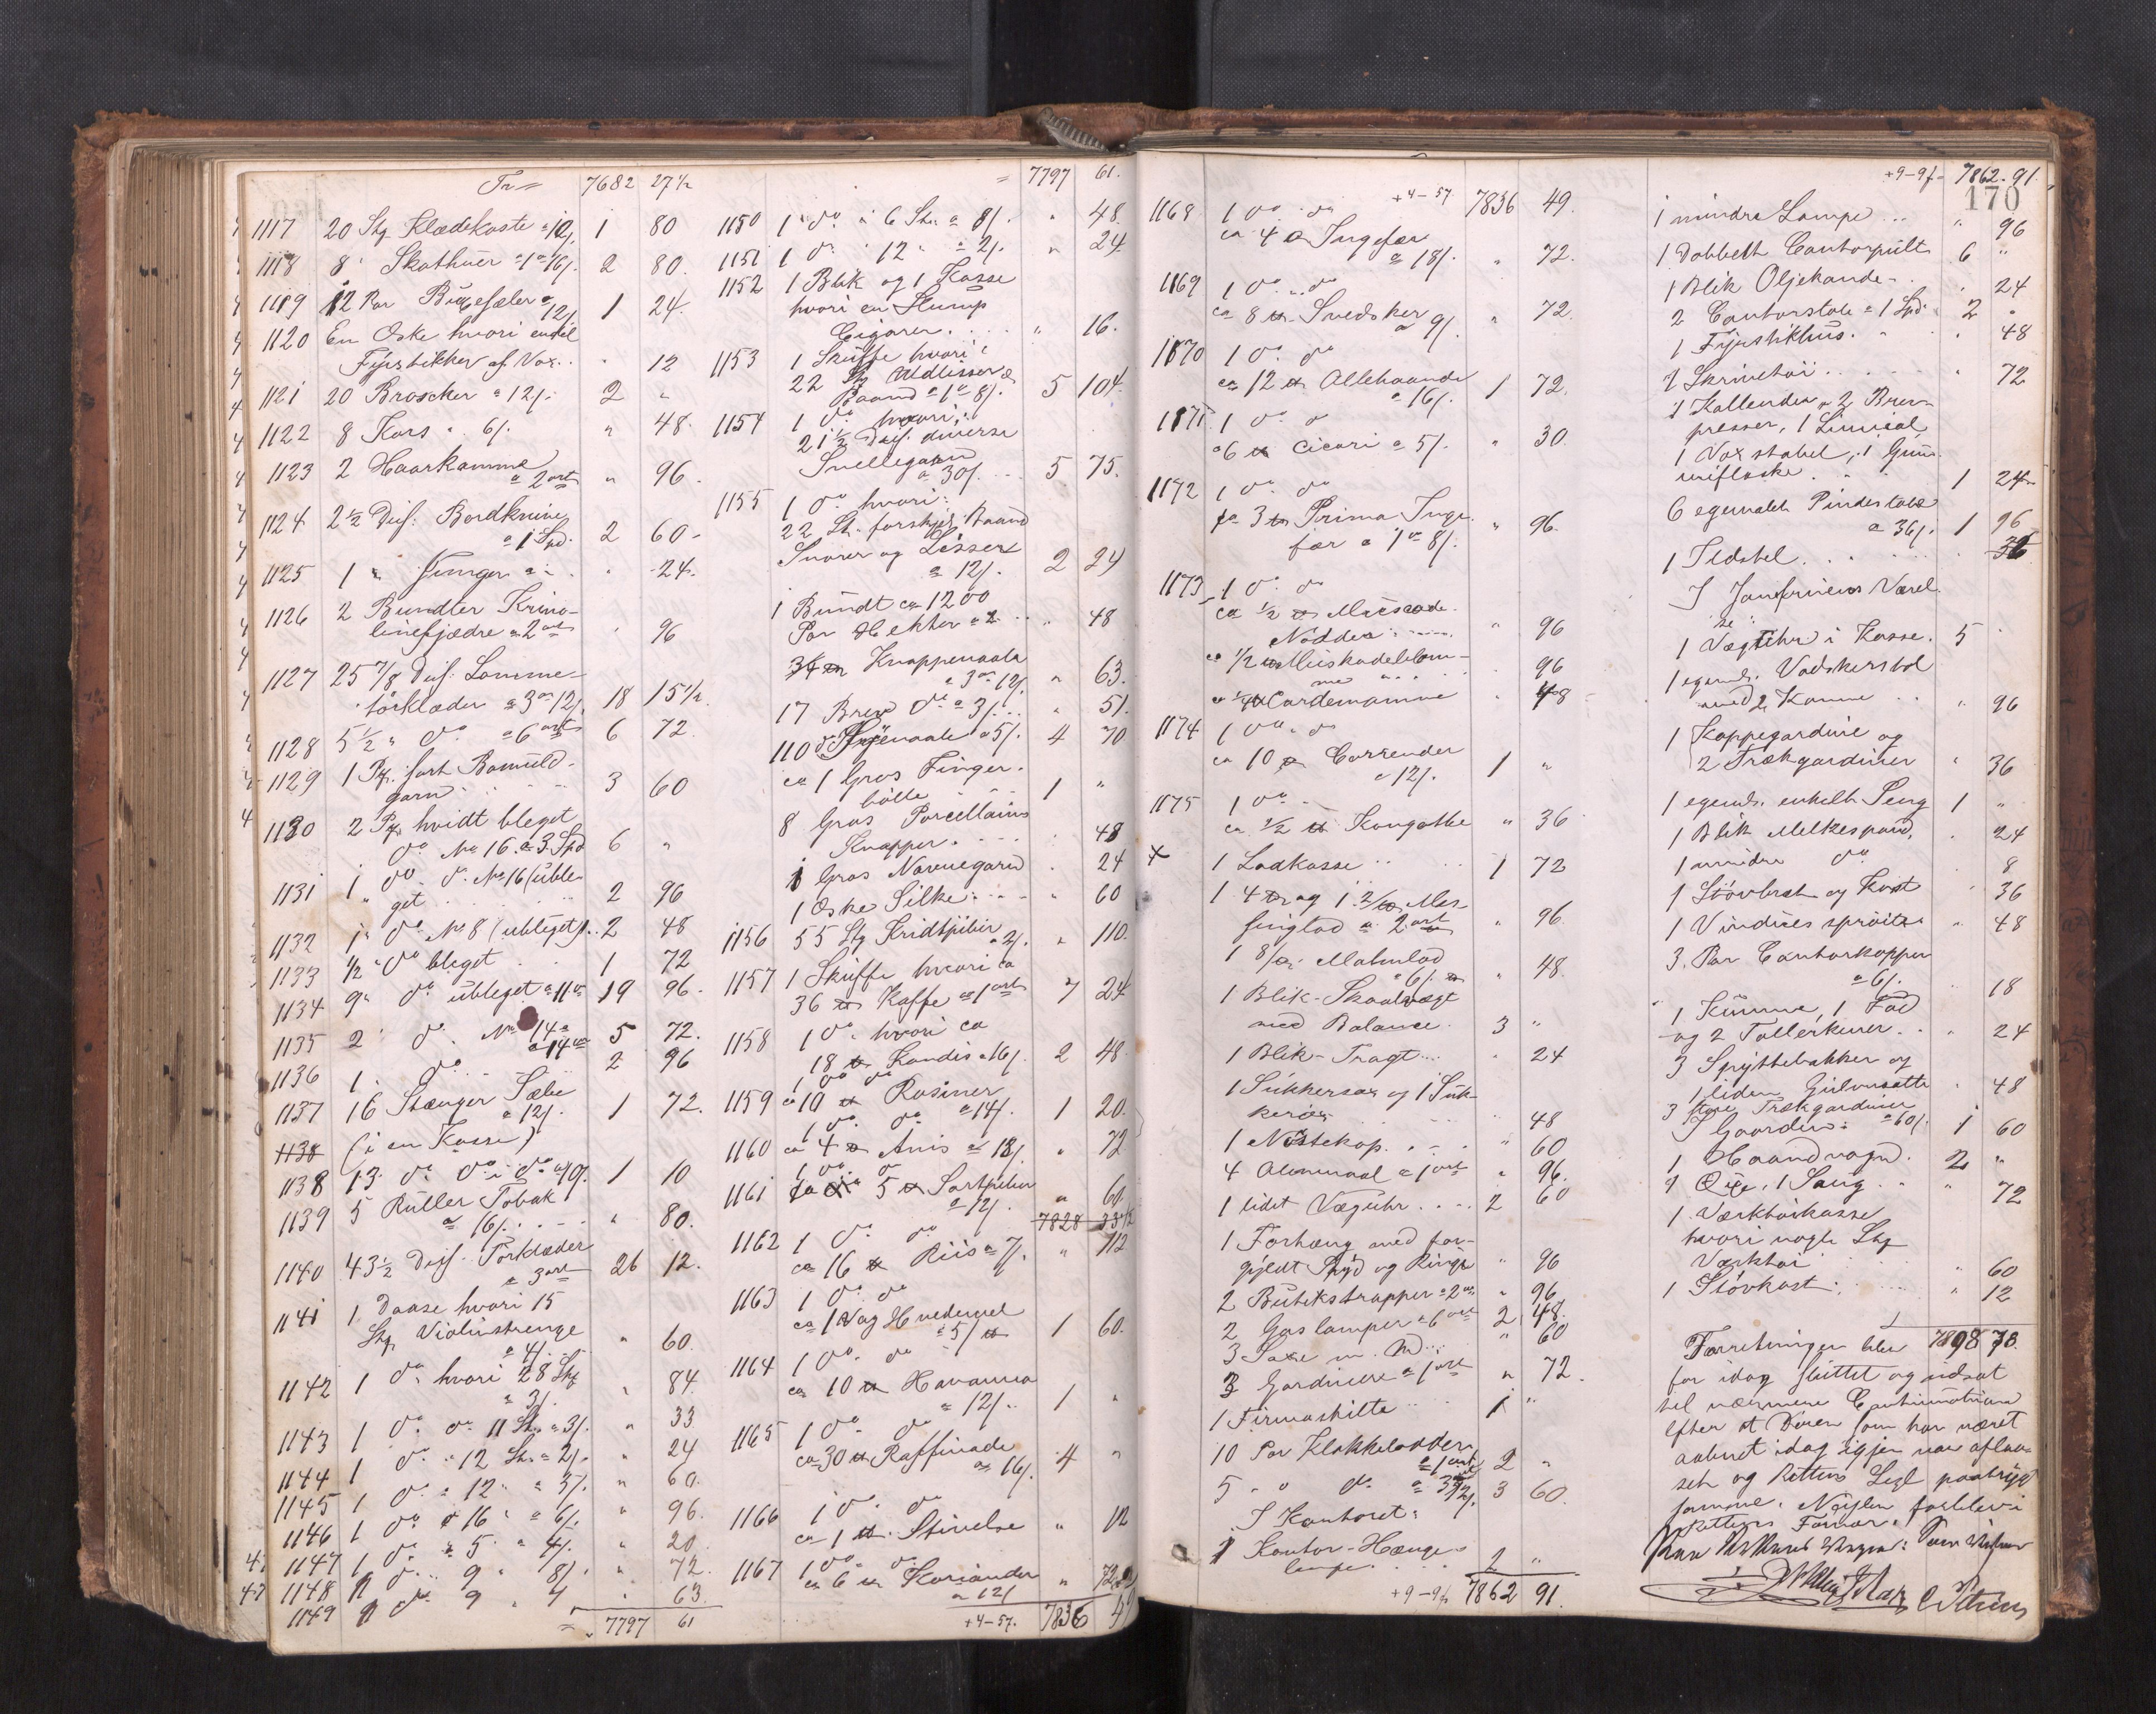 Tr = 7682 27 1/2
1117 20 Stg Klædekoste a 12/. 1 80
1118 8 " Skothuer a 1 a 16/. 2 80.
1119 12 Par Buxeseler a 12/. 1 24.
1120 En Æske hvori endel
Fyrstikker af Vox. . " 12
1121 20 Broscher a 12/. 2 "
1122 8 Kors " 6/. " 48.
1123 2 Haarkamme a 2 ort " 96.
1124 2 1/2 Dus: Bordknive
a 1 Spd. 2 60 -
1125 1 " " " 24.
1126 2 Bundter Krino-
linefjædre a 2 ort " 96
1127 25 7/8 Dus: Lomme-
törklæder a 3 ort 12/. 18 15 1/2.
1128 5 1/2 " do a 6 ort 6 72.
1129 1 Pk. sort Bomuld-
garn 3 60
1130 2 Pk. hvidt bleget
do No 16. a 3 Spd 6 "
1131 1 " do do No 16 (uble-
get 2 96
1132 1 " do No 8 (ubleget). 2 48
1133 1/2 " do bleget 1 72
1134 9 " do ubleget a 11 ort 19 96.
1135 2 " do No 14 a
a 14 ort 5 72.
1136 1 do 2 96
1137 16 Stænger Sæbe
a 12/. 1 72.
1138 (i en Kasse)
1138 13. do do i do a 10/. 1 10
1139 5 Ruller Tobak
a 16/. " 80.
1140 43 1/2 Dus. Törklæder
a 3 ort 26 12.
1141 1 Daase hvori 15
Stg Violinstrenge
a 4/. " 60.
1142 1 do hvori 28 Stg
a 3/. " 84.
1143 1 do do 11 St. a 3/. " 33
1144 1 do " 12 St. a 2/. " 24
1145 1 do " 12 " a 5/. " 60.
1146 1 do " 16 " a 6/. " 96.
1147 1 do " 5 " a 4/. " 20
1148 1 do " 9 " 8/. " 72.
1149 1 do 9 " 7 " 63.
= 7797 61
= 7797 61.
1150 1 " do " 6 St. a 8/. " 48.
1151 1 do " 12 " a 2/. " 24
1152 1 Blik og 1 Kasse
hvori en Slump
Cigarer. . . . " 16.
1153 1 Skuffe hvori:
22 Stg Uldlisser
Baand a 1 ort 8/. 5 104.
1154 1 do hvori:
21 1/2 Dus. diverse
Snellegarn
a 30/. 5 75.
1155 1 do hvori:
22 St. forskjel. Baand
Snorer og Lisser
a 12/. 2 24
1 Bundt ca 1200
Par Hekter a 2 " 48
Knappenaale
a 3 ort 12/. " 63.
17 Breve do a 3/. " 51.
110 do Synaale a 5/. 4 70
ca 1 Gros Finger-
bölle 1 "
8 Gros Porcellains
Knapper. . . . 48
1 Gros Navnegarn 24
1 Æske Silke " 60
1156 55 Stg Kridtpiber a 2/. " 110.
1157 1 Skuffe hvori ca
36 ℔ Kaffe a 1 ort 7 24
1158 1 do hvori ca
18 ℔ Kandis a 16/. 2 48
1 do do
1159 ca 10 ℔ Rosiner
a 14/. 1 20.
1 do do
1160 ca 4 ℔ Anis a 18/. " 72
1 do do
1161 5 ℔ Sortpeber
a 12/. " 60.
7828 33 1/2
1162 1 do do
ca 16 ℔ Riis a 7/. " 112
1163 1 do do
ca 1 Vog Hvedemel
a 5/ ℔ 1 60.
1164 1 do. do
ca 10 ℔ Havanna
a 12/. 1 "
1165 1 do do
ca 30 ℔ Raffinade
a 16/. 4 "
1166 1 do do
ca 1 ℔. Stivelse " 12
1167 1 do do
ca 6 ℔ Koriander
a 12/ " 72
+4-57. 7836 49
+4-57 7836 49.
1168 1 do do
ca 4 ℔ Ingefær
a 18/. " 72.
1169 1 do do
ca 8 ℔ Svedsker
a 9/. " 72.
1170 1 do. do
ca 12 ℔ Allehaande
a 16/. 1 72.
1171 1 do do
a 6 ℔ Cicori a 5/. " 30.
1172 1 do do
ca 3 ℔ Prima Inge-
fær a 1 ort 8/. " 96.
1173 1 do do
ca 1/2 ℔ Muscade
Nödder " 96
ca 1/2 ℔ Muskadeblom-
me " 96
ca 1/4 ℔ Cardemomme " 48
1174 1 do do
ca 10 ℔ Corrender
a 12/. 1 "
1175 1 do
ca 1/2 ℔ Kongothe " 36
x 1 Ladkasse 1 72
1 4 ℔ og 1 2/ ℔ Mes-
singlod a 2 ort " 96.
1 8/ ℔ Malmlod
a 6/. ℔ " 48.
1 Blik-Skaalvægt
med Balance. 3 "
1 Blik-Tragt " 24
1 Sukkersax og 1 Suk-
keröx 48
1 Nöstekop. " 60
4 Alenmaal a 1 ort " 96.
1 lidet Væguhr 2 60
1 Forhæng med for-
gyldt Spyd og Ringe " 96
2 Butikstrapper a 2 ort " 96
2 Gaslamper a 6 ort 2 48.
3 Saxe m. M. " 60
3 Gardiner a 1 ort " 72.
1 Firmaskilte 1 "
10 Par Klokkelodder
a 1 ort 2 "
5 " " do a 3 ort 12/. 3 60.
I Kontoret:
1 Kontor-Hænge-
lampe 2 "
+9-96 7862 91.
+9-96 7862-91.
170
1 mindre Lampe " 96
1 dobbelt Contorpult 6 "
1 Blik Oljekande. . 24
2 Contorstole a 1 Spd. 2 "
1 Fyrstikhus. 48
1 Skrivetöi 72
1 Kallender, 2 Brev-
presser, 1 Linieal
1 Voxstabel, 1 Gum-
miflaske 1 24
6 egemalet Pindestole
a 36/. 1 96
1 Ildstel. 36
I Jomfruens Værel-
se:
1 Væguhr i Kasse. 5 "
1 egem. Vadskerstol
med 2 Kanne " 96
1 Kappegardine og
2 Trækgardiner " 36
1 egem. enkelt Seng 1 "
1 Blik Melkespand, 24
1 mindre do 8
1 Stövbret og Kost 36
1 Vindues spröite " 48
3. Par Contorkopper
a 6/. 18
1 Kumme, 1 Fad
og 2 Tallerkener. . " 24
3 Spyttebakker og
1 liden Gulvmatte " 48
3 store Trækgardiner a 60/. 1 60
I Gaarden:
1 Haandvogn. 2 "
1 Öxe, 1 Saug " 72
1 Værktöikasse
hvori nogle Stg
Værktöi " 60
1 Stövkost " 12
7898 78.
Forretningen blev
for idag sluttet og udsat
til nærmere Continuation
efter at Dören som har været
aabnet idag igjen var aflaa-
set og Rettens Segl paatrykt
samme. Nöglen forblev i
Rettens Forvar.